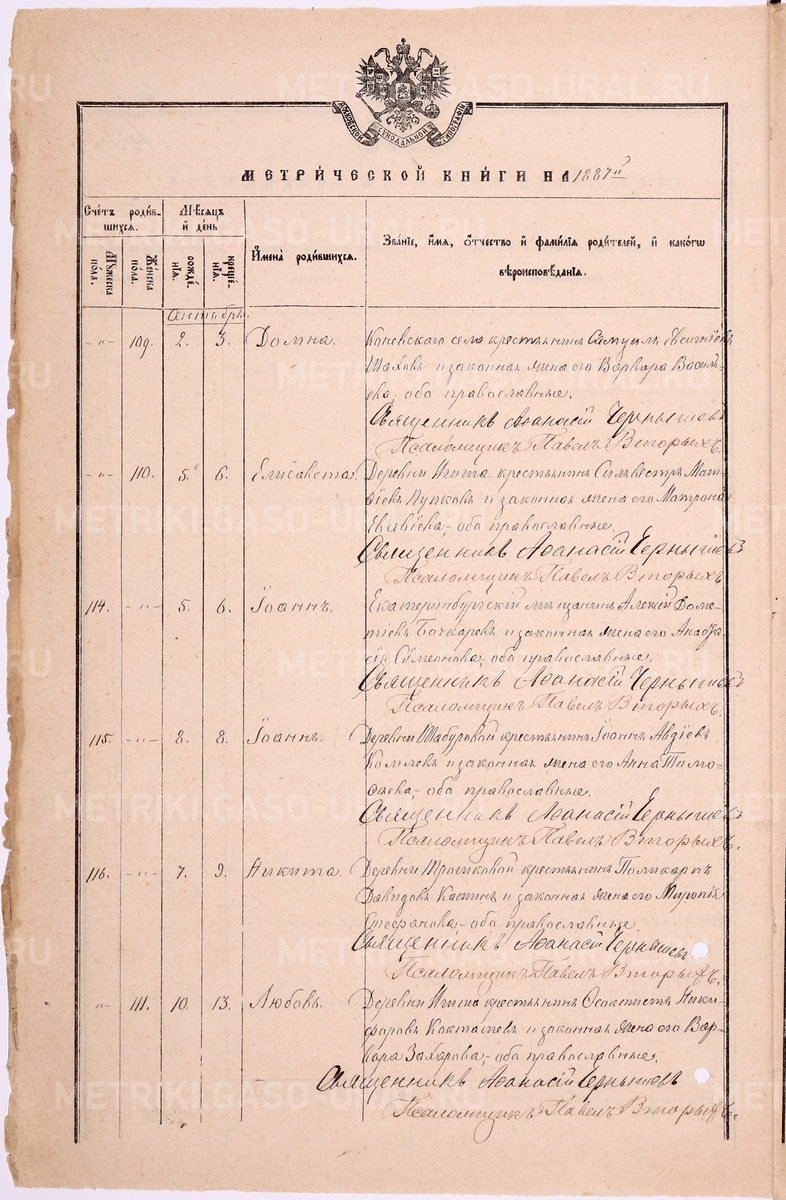 МОСКОВСКОЙ СѴНОДАЛЬНОЙ ТИПОГРАФІИ
МЕТРИ́ЧЕСКОЙ КНИ́ГИ НА 1887й
Сче́тъ роди́вшихся.
Мѣ́сяцъ и҆ де́нь
И҆мена̀ роди́вшихся.
Зва́нїе, и҆́мя, ѻ҆́тчество и҆ фами́лїя роди́телей, и҆ како́гѡ вѣроисповѣ́данїя.
Мꙋ́жеска по́ла.
Же́нска по́ла.
рожде́нїя.
креще́нїя.
Сентябрь.
-"- 109. 2. 3. Домна. Коневскаго села крестьянинъ Самуилъ Евсигніевъ
Шаховъ и законная жена его Варвара Василь-
ева, оба православные.
Священникъ Аѳанасій Чернышевъ
Псаломщикъ Павелъ Вторыхъ.
-"- 110. 5. 6. Елисавета. Деревни крестьянинъ Сильвестръ Мат-
ѳіевъ Пупковъ и законная жена его Матрона
оба православные.
Священникъ Аѳанасій Чернышевъ
Псаломщикъ Павелъ Вторыхъ.
114. -"- 5. 6. Іоаннъ. Екатеринбургскій мѣщанинъ Алексій Доме-
тіевъ Бочкаревъ и законная жена его Анаста-
сія Сѵмеонова, оба православные.
Священникъ Аѳанасій Чернышевъ
Псаломщикъ Павелъ Вторыхъ.
115. -"- 8. 8. Іоаннъ. Деревни Шабуровой крестьянинъ Іоаннъ Авдіевъ
и законная жена его Анна Тимо-
ѳеева, оба православные.
Священникъ Аѳанасій Чернышевъ
Псаломщикъ Павелъ Вторыхъ.
116. -"- 7. 9. Никита. Деревни крестьянинъ Поликарпъ
Давидовъ Костинъ и законная жена его Миропія
Стефанова, оба православные.
Священникъ Аѳанасій Чернышевъ
Псаломщикъ Павелъ Вторыхъ.
-"- 111. 10. 13. Любовь. Деревни крестьянинъ Ники-
форовъ и законная жена его Вар-
вара Захарова, оба православные.
Священникъ Аѳанасій Чернышевъ
Псаломщикъ Павелъ Вторыхъ.
METRIKI.GASO-URAL.RU